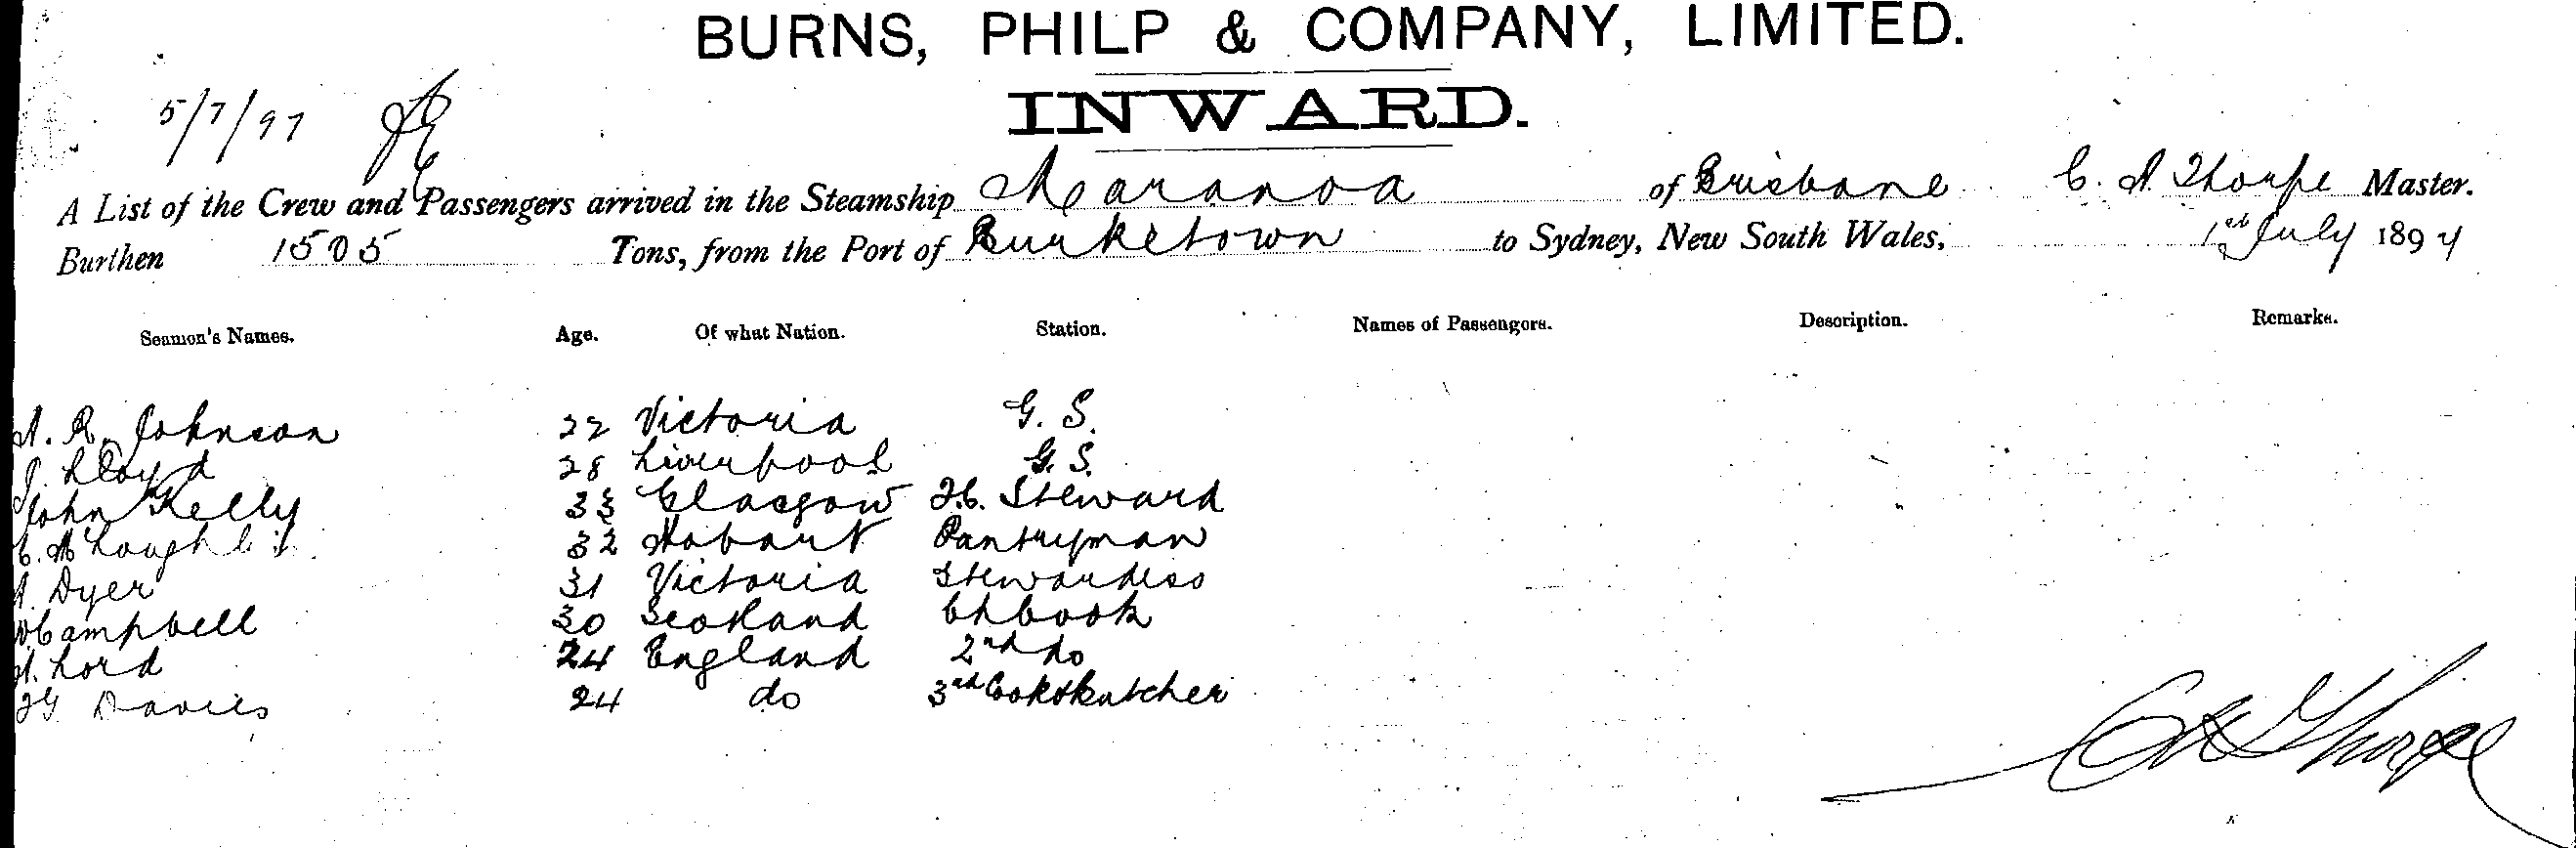 BURNS, PHILP & COMPANY, LIMITED.
INWARD.
5/7/97
A List of the Crew and Passengers arrived in the Steamship Maranoa of Brisbane C. A. Thorpe Master.
Burthen 1505 Tons, from the Port of Burketown to Sydney, New South Wales, 1st July 1897
Seamen's Names. Age. Of what Nation. Station. Names of Passengers. Description. Remarks.
A. R. Johnson 22 Victoria G. S.
J. Lloyd 28 Liverpool G. S.
John Kelly 33 Glasgow F.C. Steward
C. McLoughlin 32 Hobart Pantryman
A. Dyer 31 Victoria Stewardess
W Campbell 30 Scotland Ch Cook
A. Lord 24 England 2nd do
Davies 24 do 3rd Cook & Butcher
C A Thorpe